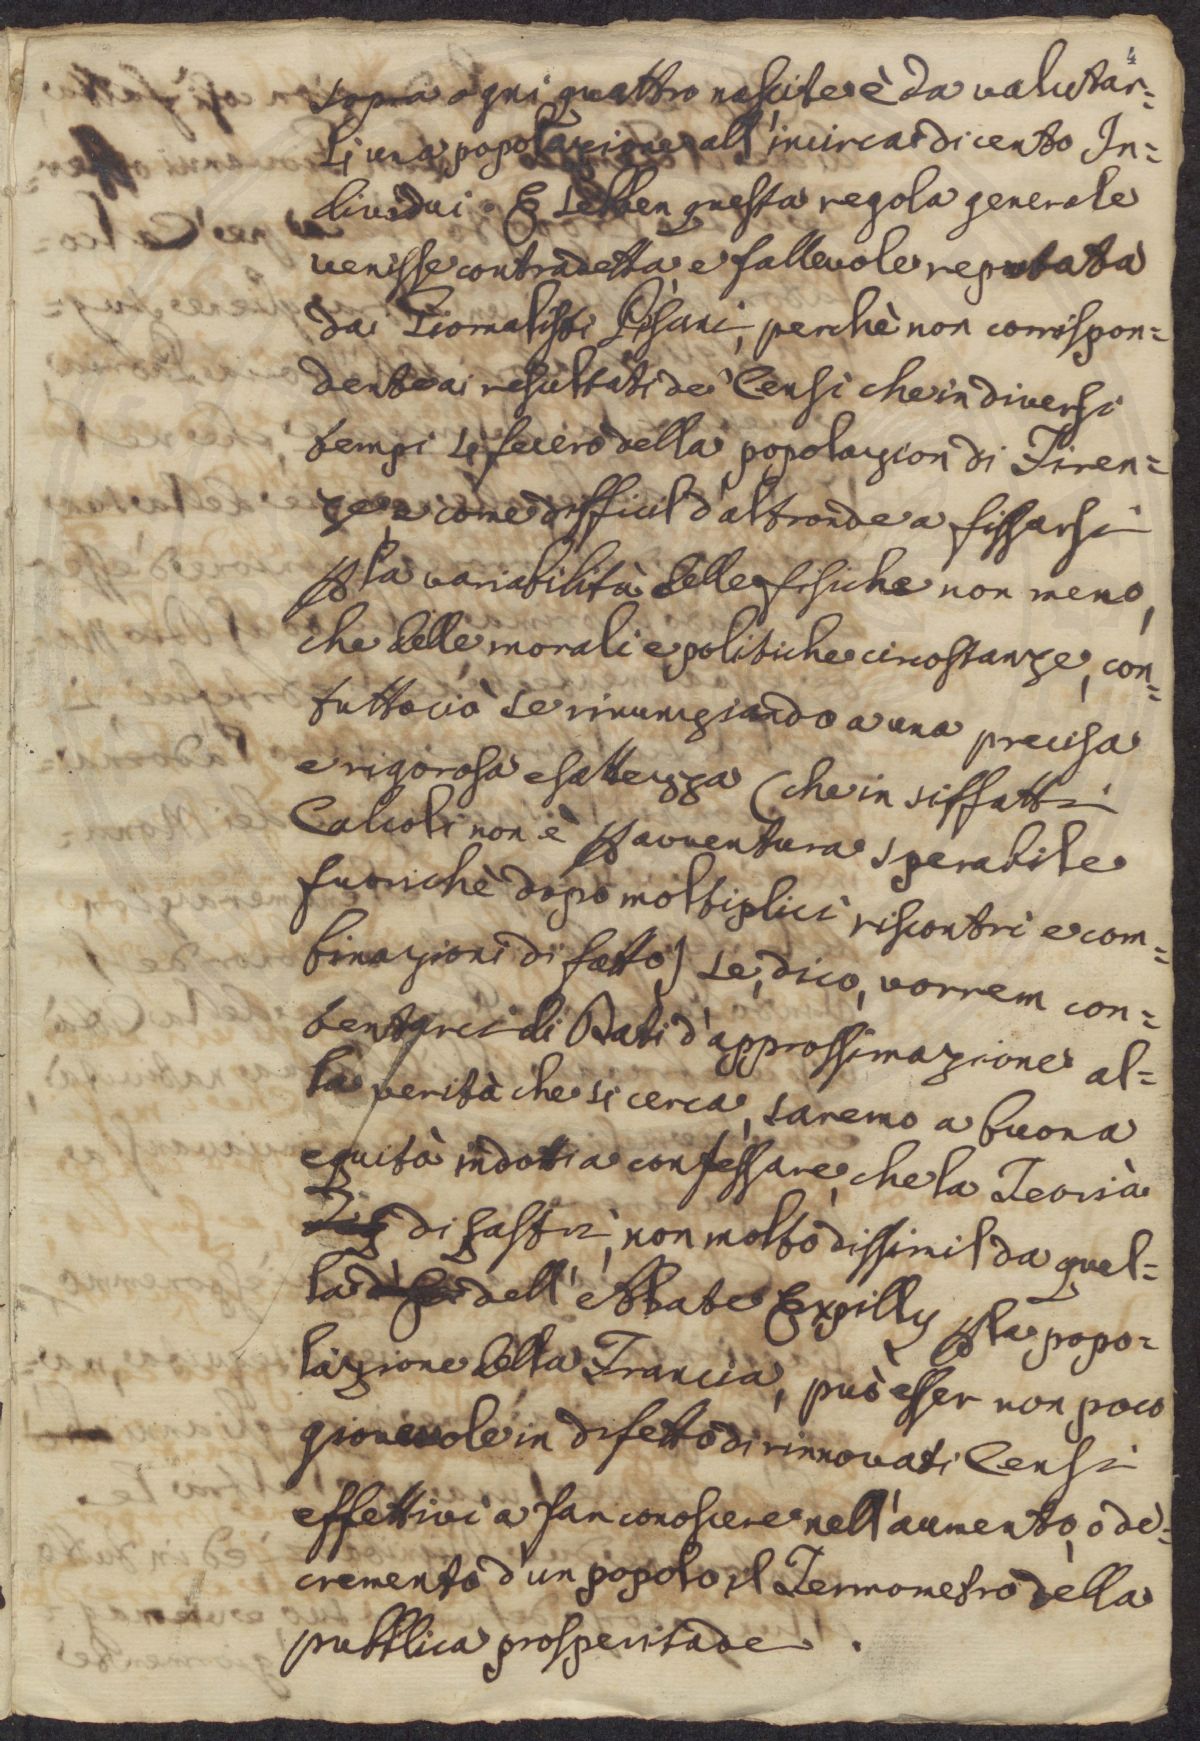 4
sopra ogni quattro nascite è da valutar=
si una popolazione all'incirca di cento In=
dividui. E sebben questa regola generale
venisse contradetta e fallevole reputata
da' Giornalisti Pisani, perchè non corrispon=
dente ai resultati de' Censi che in diversi
tempi si fecero della popolazion di Firen=
ze, e come difficil d'altronde a fissarsi
p la variabilità delle fisiche non meno,
che delle morali e politiche circostanze, con=
tuttociò se rinunziando a una precisa
e rigorosa esattezza (che in siffatti
Calcoli non è p avventura sperabile
fuorichè dopo moltiplici riscontri e com=
binazioni di fatto) se, dico, vorrem con=
tentarci di Dati d'approssimazione al=
la verità che si cerca, saremo a buona
equità indotti a confessare, che la Teoria
di Gastri, non molto dissimil da quel=
la dell'Abbate Expilly p la popo=
lazione della Francia, può esser non poco
giovevole in difetto di rinnovati Censi
effettivi a far conoscere nell'aumento, o de=
cremento d'un popolo, il Termometro della
pubblica prosperitade.